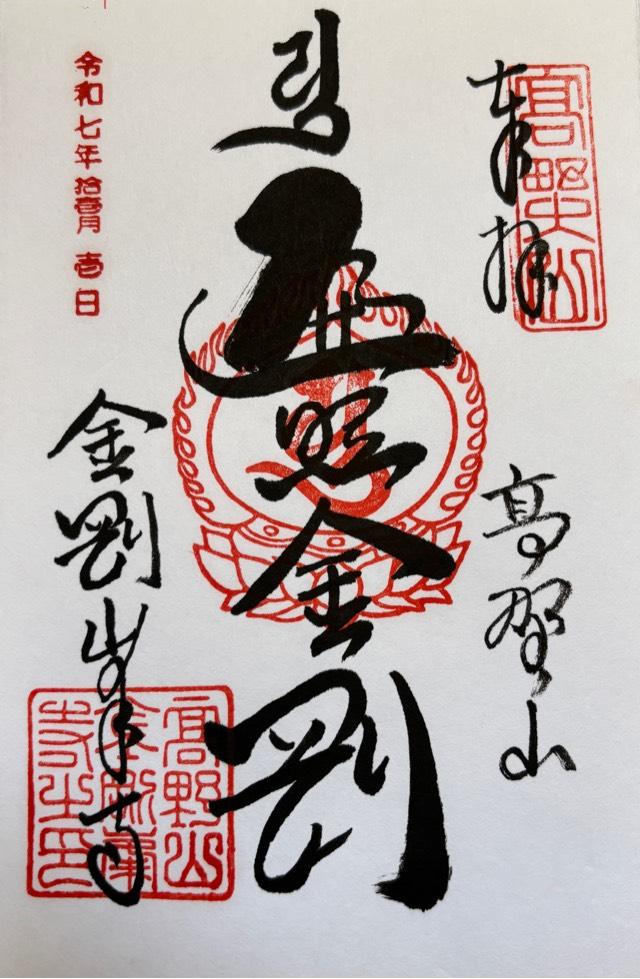 奉拝
高野山
高野山
遍照金剛
令和七年拾壹月壱日
金剛峯寺
高野山
金剛峯
寺之印